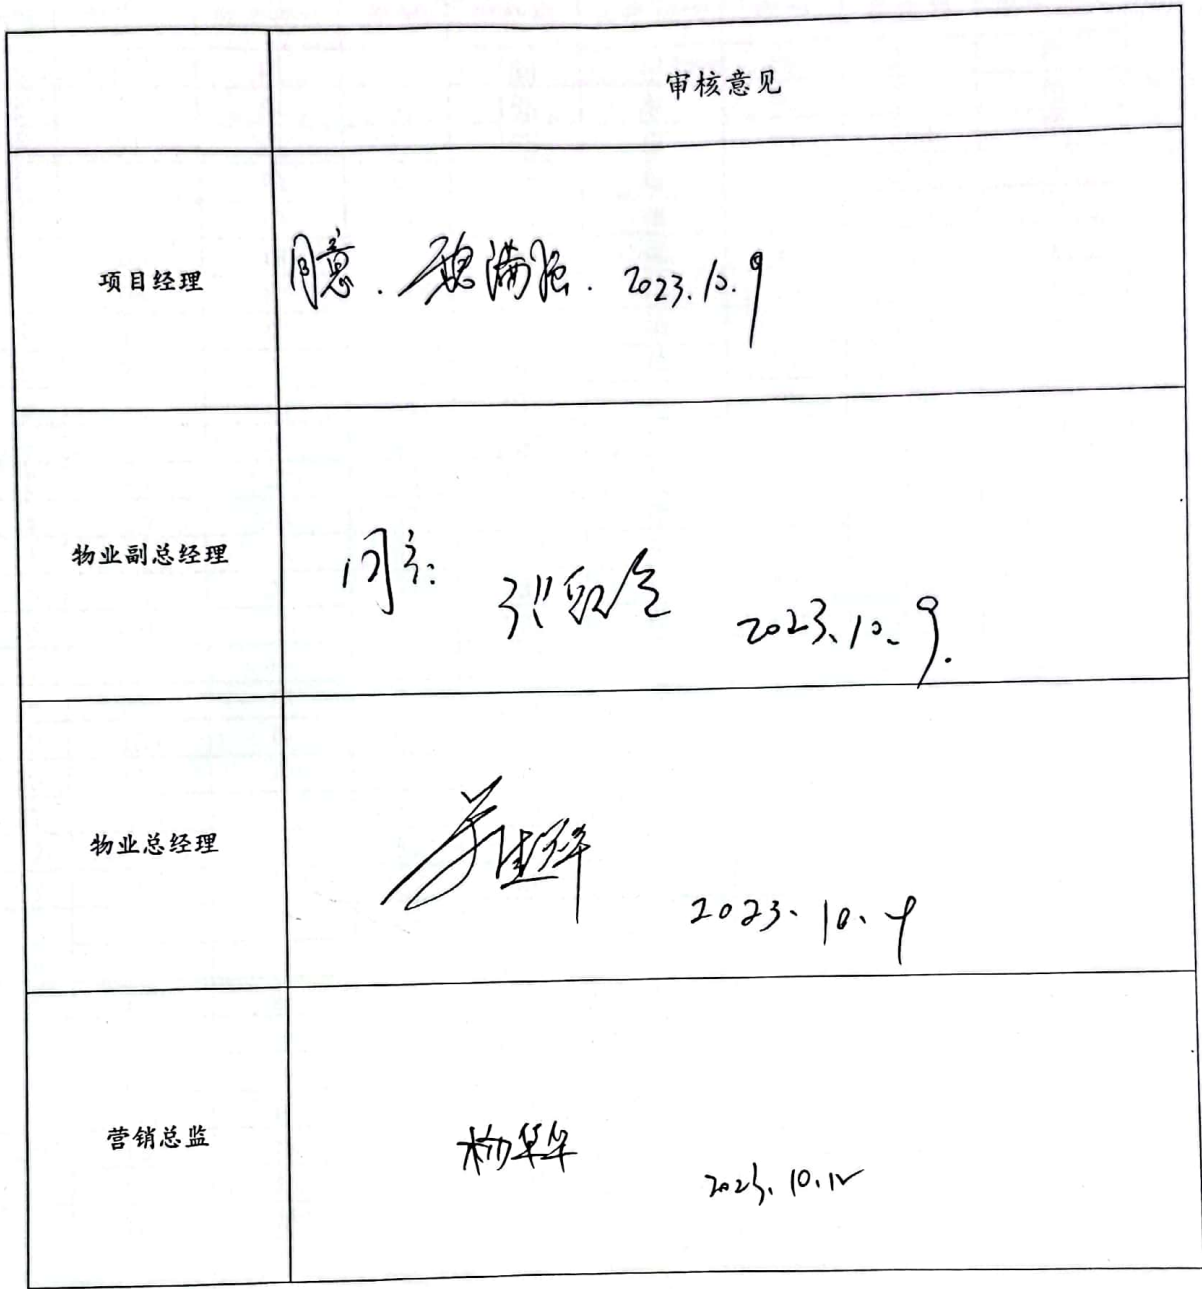 审核意见
项目经理
同意. 魏满强. 2023.10.9
物业副总经理
同意 2023.10.9.
物业总经理
2023.10.9
营销总监
杨华 2023.10.12